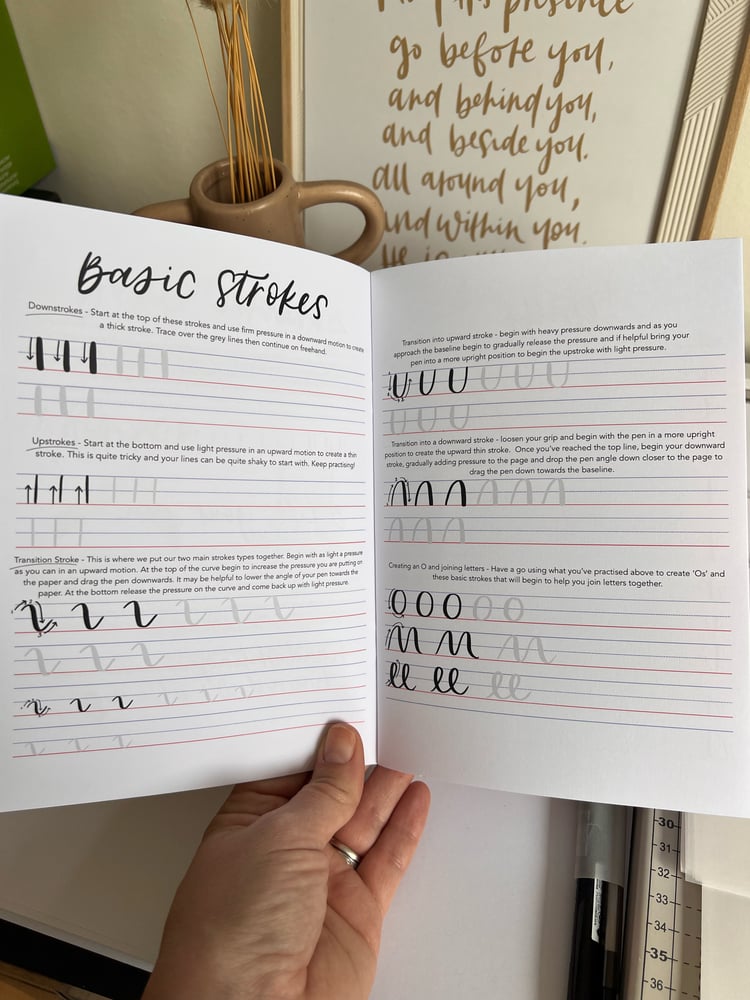 go before you,
and behind you,
and beside you.
all around you,
and within you.
Basic Strokes
Downstrokes - Start at the top of these strokes and use firm pressure in a downward motion to create
a thick stroke. Trace over the grey lines then continue on freehand.
Upstrokes - Start at the bottom and use light pressure in an upward motion to create a thin
stroke. This is quite tricky and your lines can be quite shaky to start with. Keep practising!
Transition Stroke - This is where we put our two main strokes types together. Begin with as light a pressure
as you can in an upward motion. At the top of the curve begin to increase the pressure you are putting on
the paper and drag the pen downwards. It may be helpful to lower the angle of your pen towards the
paper. At the bottom release the pressure on the curve and come back up with light pressure.
Transition into upward stroke - begin with heavy pressure downwards and as you
approach the baseline begin to gradually release the pressure and if helpful bring your
pen into a more upright position to begin the upstroke with light pressure.
Transition into a downward stroke - loosen your grip and begin with the pen in a more upright
position to create the upward thin stroke. Once you've reached the top line, begin your downward
stroke, gradually adding pressure to the page and drop the pen angle down closer to the page to
drag the pen down towards the baseline.
Creating an O and joining letters - Have a go using what you've practised above to create 'Os' and
these basic strokes that will begin to help you join letters together.
30
31
32
33
34
35
36